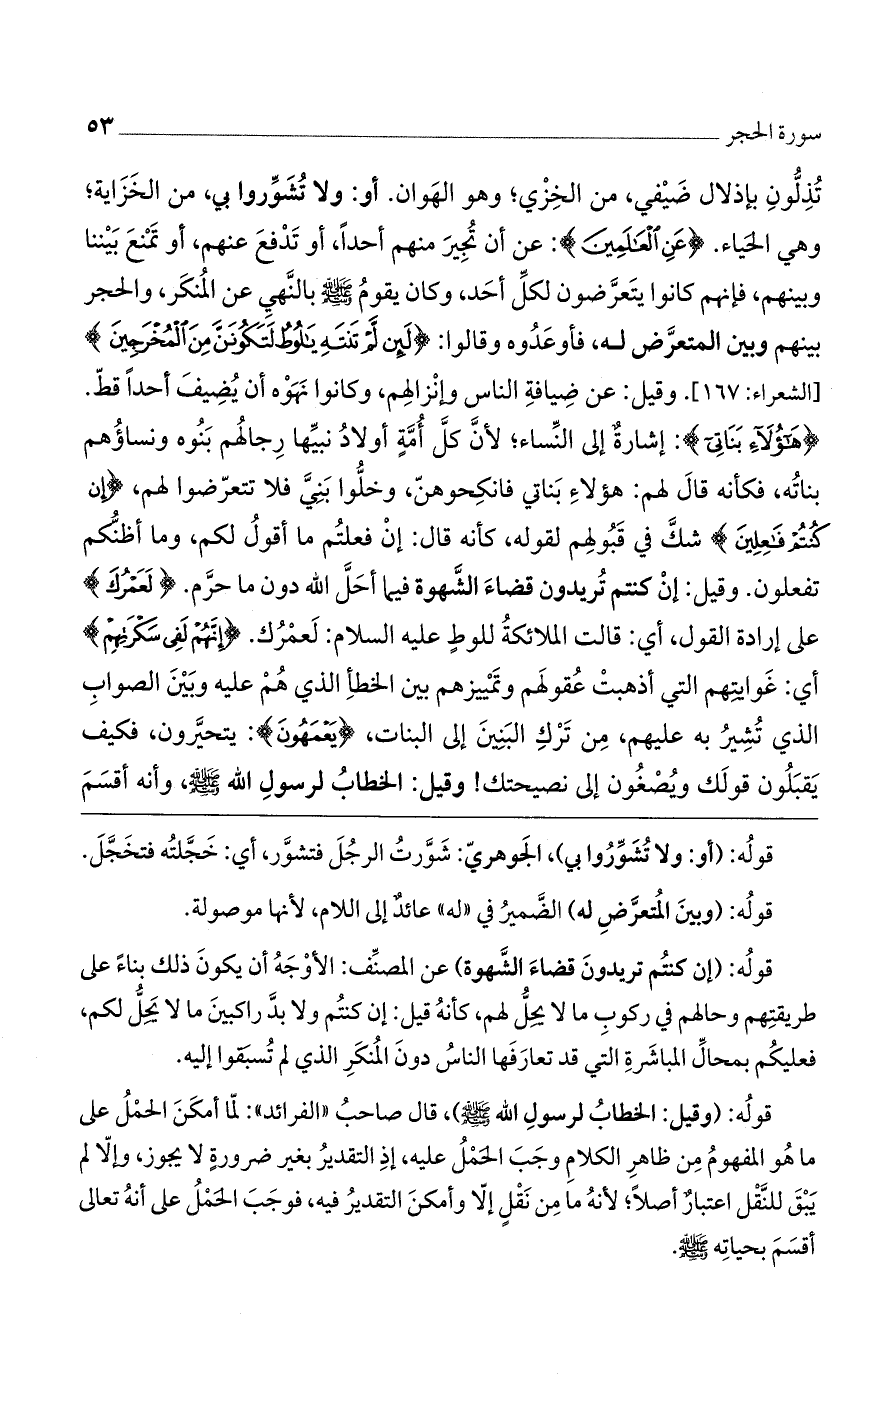 سورة الحجر ٥٣
تُذِلُّونِ بإذلال ضَيْفي، من الخِزْي؛ وهو الهَوان. أو: ولا تُشَوِّروا بي، من الخَزَاية؛
وهي الحَياء. ﴿عَنِ ٱلْعَـٰلَمِينَ﴾: عن أن تُجِيرَ منهم أحداً، أو تَدْفعَ عنهم، أو تَمْنعَ بَيْننا
وبينهم، فإنهم كانوا يتَعرَّضون لكلِّ أحَد، وكان يقومُ ﷺ بالنَّهي عن المُنكَر، والحجر
بينهم وبين المتعرَّض لـه، فأوعَدُوه وقالوا: ﴿لَئِن لَّمْ تَنتَهِ يَـٰلُوطُ لَتَكُونَنَّ مِنَ ٱلْمُخْرَجِينَ﴾
[الشعراء: ١٦٧]. وقيل: عن ضِيافةِ الناس وإنْزالهِم، وكانوا نهَوْه أن يُضِيفَ أحداً قطّ.
﴿هَـٰٓؤُلَآءِ بَنَاتِىٓ﴾: إشارةٌ إلى النِّساء؛ لأنَّ كلَّ أُمَّةٍ أولادُ نبيِّها رِجالهُم بَنُوه ونساؤُهم
بناتُه، فكأنه قالَ لهم: هؤلاءِ بَناتي فانكِحوهنّ، وخلُّوا بَنِيَّ فلا تتعرّضوا لهم، ﴿إِن
كُنتُمْ فَـٰعِلِينَ﴾ شكَّ في قَبُولهِم لقوله، كأنه قال: إنْ فعلتُم ما أقولُ لكم، وما أظنُّكم
تفعلون. وقيل: إنْ كنتم تُريدون قضاءَ الشَّهوة فيما أحَلَّ الله دون ما حرَّم. ﴿لَعَمْرُكَ﴾
على إرادة القول، أي: قالت الملائكةُ للوطٍ عليه السلام: لَعمْرُك. ﴿إِنَّهُمْ لَفِى سَكْرَتِهِمْ﴾
أي: غَوايتِهم التي أذهبتْ عُقولهَم وتمْييزهم بين الخطأِ الذي هُمْ عليه وبَيْنَ الصوابِ
الذي تُشِيرُ به عليهم، مِن تَرْكِ البَنِينَ إلى البنات، ﴿يَعْمَهُونَ﴾: يتحيَّرون، فكيف
يَقبَلُون قولَك ويُصْغُون إلى نصيحتك! وقيل: الخطابُ لرسولِ الله ﷺ، وأنه أقسَمَ
قولُه: (أو: ولا تُشَوِّرُوا بي)، الجَوهريّ: شَوَّرتُ الرجُلَ فتشوَّر، أي: خَجَّلتُه فتخَجَّلَ.
قولُه: (وبينَ المُتعرَّضِ له) الضَّميرُ في «له» عائدٌ إلى اللام، لأنها موصولة.
قولُه: (إن كنتُم تريدونَ قضاءَ الشَّهوة) عن المصنِّف: الأوْجَهُ أن يكونَ ذلك بناءً على
طريقتِهم وحالهم في ركوبِ ما لا يحِلُّ لهم، كأنهُ قيل: إن كنتُم ولا بدَّ راكبينَ ما لا يَحِلُّ لكم،
فعليكُم بمحالِّ المباشَرةِ التي قد تعارَفَها الناسُ دونَ المُنكَرِ الذي لم تُسبَقوا إليه.
قولُه: (وقيل: الخطابُ لرسولِ الله ﷺ)، قال صاحبُ «الفرائد»: لمّا أمكنَ الحمْلُ على
ما هُو المفهومُ مِن ظاهرِ الكلامِ وجَبَ الحَمْلُ عليه، إذِ التقديرُ بغير ضرورةٍ لا يجوز، وإلّا لم
يَبْقَ للنَّقْل اعتبارٌ أصلاً؛ لأنهُ ما مِن نَقْلٍ إلّا وأمكنَ التقديرُ فيه، فوجَبَ الحَمْلُ على أنهُ تعالى
أقسَمَ بحياتِه ﷺ.